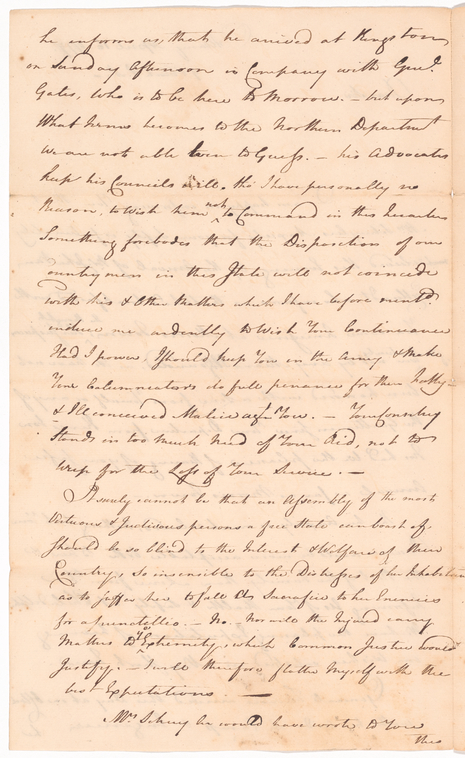 he informs us, that he arrived at Kingston
on Sunday afternoon in Company with Genl.
Gates, who is to be here to Morrow. – but upon
What terms he comes to the Northern Departmt
we are not able even to Guess. – his Advocates
keep his Councils well. tho' I have personally no
Reason, to wish him not to Command in this Quarter
Something forebodes that the Disposition of our
Countrymen in this State will not coincide
with his & Other Matters which I have before mentd.
induce me ardently to Wish Your Continuance
Had I power, I should keep You in the Army & Make
Your Calumniators do full penance for their
& Ill conceived Malice agt. You. – Your Country
Stands in too much Need of Your Aid, not to
weep for the Loss of Your Service. –
It surely cannot be that an Assembly of the most
Virtuous & Judicious persons a free State can boast of
Should be so blind to the Interest & Welfare of their
Country, so insensible to the Distresses of her Inhabitants
as to suffer her to fall a Sacrifice to her Enemies
for a punctillio. – No. Nor will the Injured carry
Matters to yt Extremity, which Common Justice would
Justify. – I will therefore flatter Myself with the
best Expectations. –
Mrs. he would have wrote to You
this